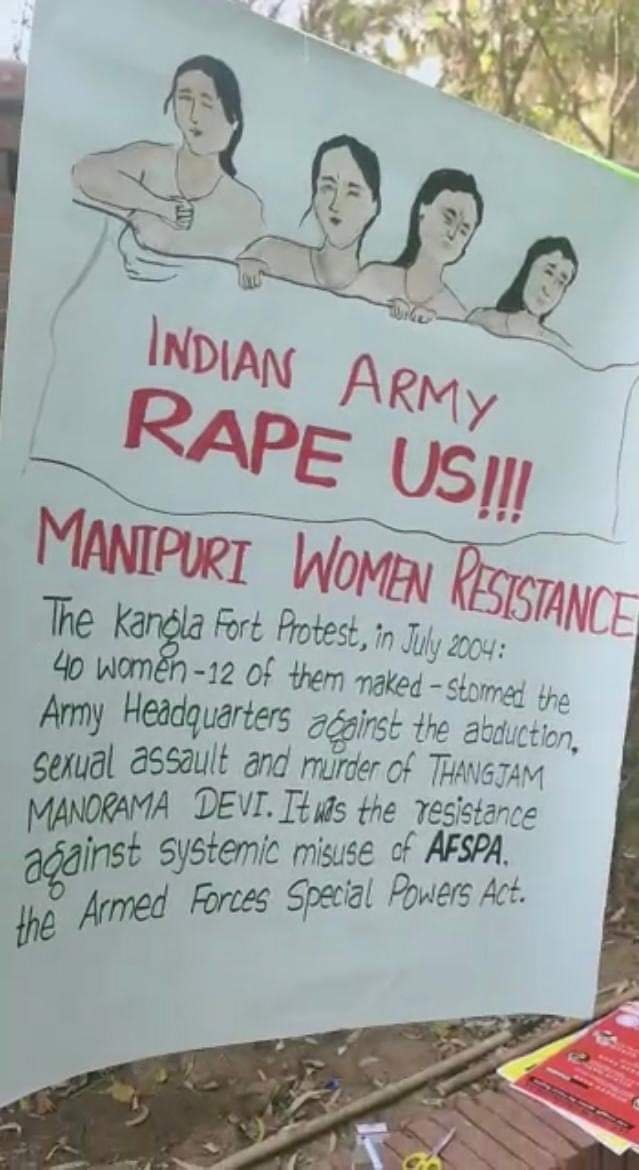 INDIAN ARMY
RAPE US!!!
MANIPURI WOMEN RESISTANCE
The Kangla Fort Protest, in July 2004:
40 women - 12 of them naked - stormed the
Army Headquarters against the abduction,
sexual assault and murder of THANGJAM
MANORAMA DEVI. It was the resistance
against systemic misuse of AFSPA.
the Armed Forces Special Powers Act.